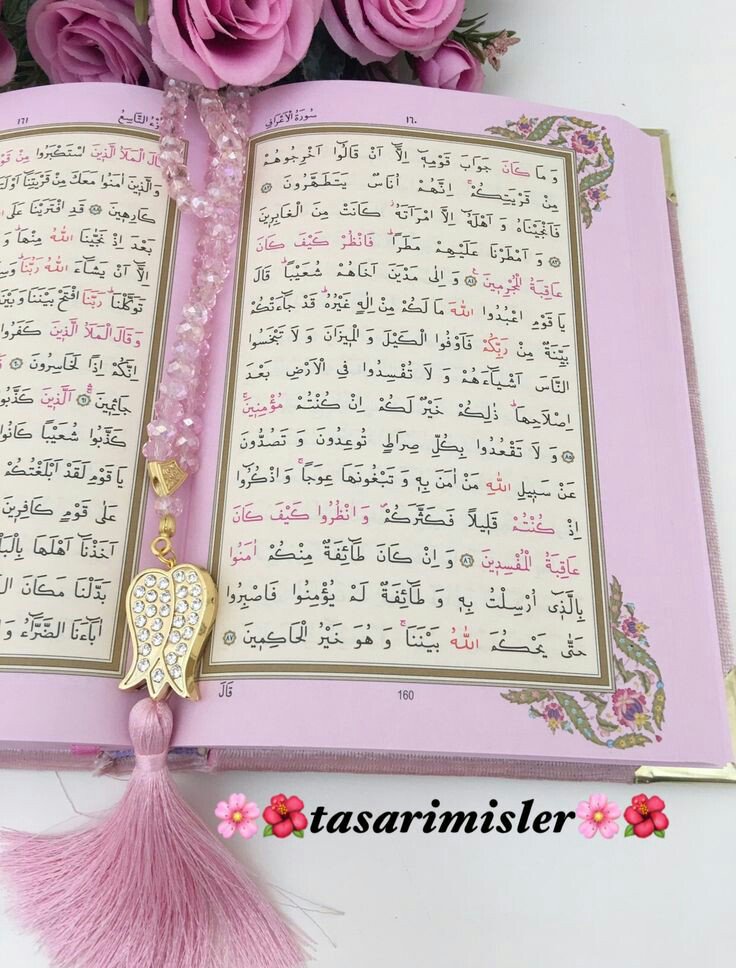 سُورَةُ الْاَعْرَافِ
١٦٠
وَمَا كَانَ جَوَابَ قَوْمِهٖٓ اِلَّٓا اَنْ قَالُٓوا اَخْرِجُوهُمْ
مِنْ قَرْيَتِكُمْۚ اِنَّهُمْ اُنَاسٌ يَتَطَهَّرُونَ ﴿٨٢﴾
فَاَنْجَيْنَاهُ وَ اَهْلَهُٓ اِلَّا امْرَاَتَهُۘ كَانَتْ مِنَ الْغَابِرٖينَ
﴿٨٣﴾ وَ اَمْطَرْنَا عَلَيْهِمْ مَطَراًۜ فَانْظُرْ كَيْفَ كَانَ
عَاقِبَةُ الْمُجْرِمٖينَ۟ ﴿٨٤﴾ وَ اِلٰى مَدْيَنَ اَخَاهُمْ شُعَيْباًۜ قَالَ
يَا قَوْمِ اعْبُدُوا اللّٰهَ مَا لَكُمْ مِنْ اِلٰهٍ غَيْرُهُۜ قَدْ جَٓاءَتْكُمْ
بَيِّنَةٌ مِنْ رَبِّكُمْ فَاَوْفُوا الْكَيْلَ وَ الْمٖيزَانَ وَ لَا تَبْخَسُوا
النَّاسَ اَشْيَٓاءَهُمْ وَ لَا تُفْسِدُوا فِي الْاَرْضِ بَعْدَ
اِصْلَاحِهَاۜ ذٰلِكُمْ خَيْرٌ لَكُمْ اِنْ كُنْتُمْ مُؤْمِنٖينَۚ
﴿٨٥﴾ وَ لَا تَقْعُدُوا بِكُلِّ صِرَاطٍ تُوعِدُونَ وَ تَصُدُّونَ
عَنْ سَبٖيلِ اللّٰهِ مَنْ اٰمَنَ بِهٖ وَ تَبْغُونَهَا عِوَجاًۚ وَ اذْكُرُٓوا
اِذْ كُنْتُمْ قَلٖيلاً فَكَثَّرَكُمْ وَ انْظُرُوا كَيْفَ كَانَ
عَاقِبَةُ الْمُفْسِدٖينَ ﴿٨٦﴾ وَ اِنْ كَانَ طَٓائِفَةٌ مِنْكُمْ اٰمَنُوا
بِالَّذٖٓي اُرْسِلْتُ بِهٖ وَ طَٓائِفَةٌ لَمْ يُؤْمِنُوا فَاصْبِرُوا
حَتّٰى يَحْكُمَ اللّٰهُ بَيْنَنَاۚ وَ هُوَ خَيْرُ الْحَاكِمٖينَ ﴿٨٧﴾
قَالَ
160
١٦١
قَالَ الْمَلَاُ الَّذٖينَ اسْتَكْبَرُوا مِنْ
وَالَّذٖينَ اٰمَنُوا مَعَكَ مِنْ قَرْيَتِنَٓا
كَارِهٖينَ ﴿٨٨﴾ قَدِ افْتَرَيْنَا
بَعْدَ اِذْ نَجّٰينَا اللّٰهُ مِنْهَاۜ
اِلَّٓا اَنْ يَشَٓاءَ اللّٰهُ رَبُّنَاۜ
تَوَكَّلْنَاۜ رَبَّنَا افْتَحْ بَيْنَنَا وَبَيْنَ
وَقَالَ الْمَلَاُ الَّذٖينَ كَفَرُوا
اِنَّكُمْ اِذاً لَخَاسِرُونَ
جَاثِمٖينَۚۛ ﴿٩١﴾ اَلَّذٖينَ
كَذَّبُوا شُعَيْباً كَانُوا
يَا قَوْمِ لَقَدْ اَبْلَغْتُكُمْ
عَلٰى قَوْمٍ كَافِرٖينَ
اَخَذْنَٓا اَهْلَهَا
بَدَّلْنَا مَكَانَ
اٰبَٓاءَنَا الضَّرَّٓاءُ
🌸🌺tasarimisler🌸🌺